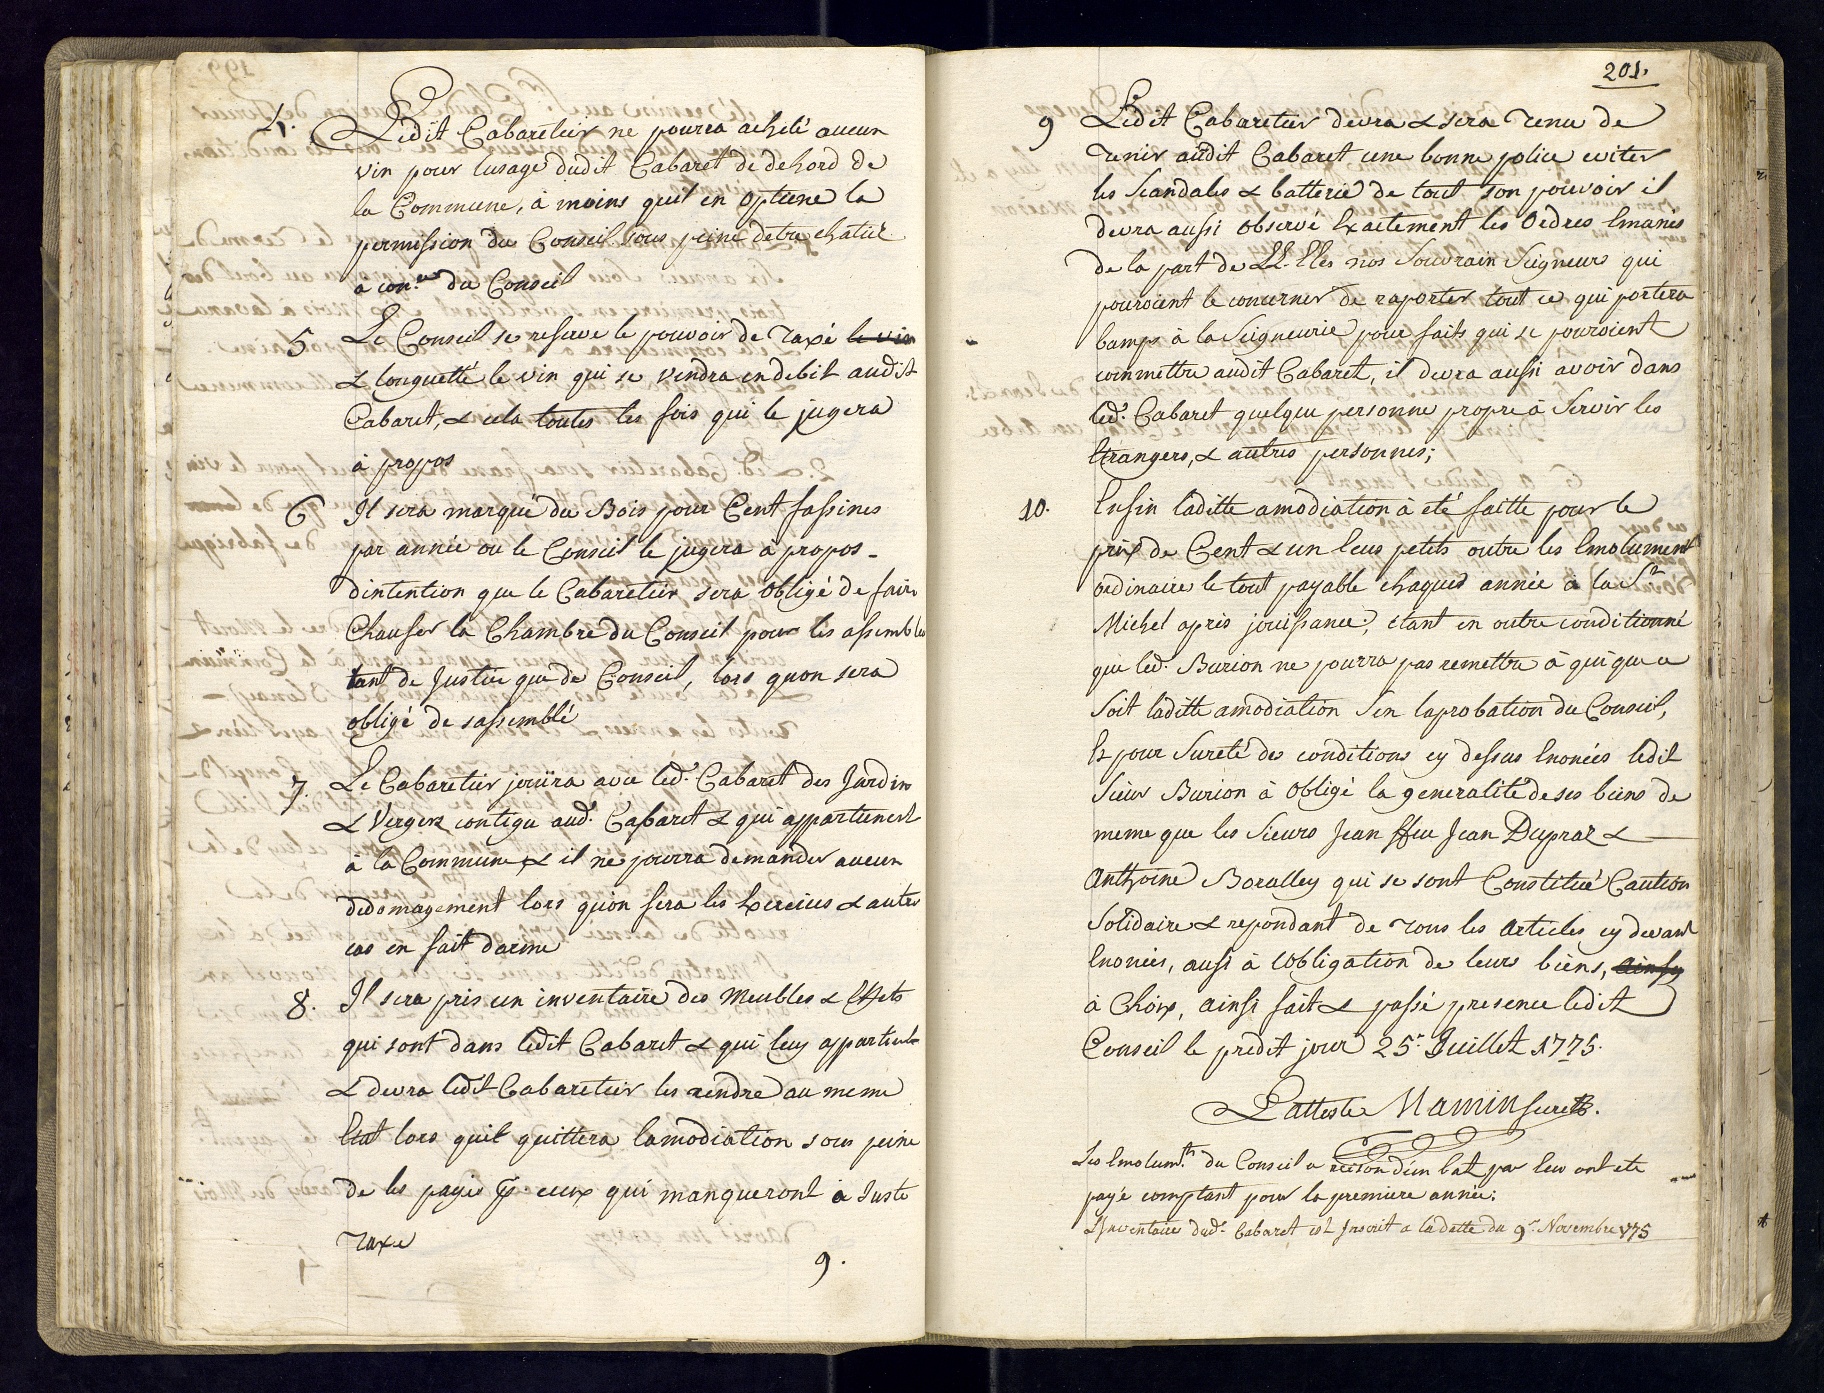 4. Ledit Cabaretier ne pourra acheté aucun
vin pour lusage dudit Cabaret de dehord de
la Commune, à moins quil en optiene la
permission du Conseil sous peine detre chatié
a con.^on du Conseil
5 Le Conseil se reserve le pouvoir de Taxé le vin
& longuetté le vin qui se vendra en debit audit
Cabaret, & cela toutes les fois qui le jugera
à propos
6 Il sera marqué du Bois pour Cent fassines
par année ou le Conseil le jugera à propos -
dintention que le Cabaretier sera obligé de faire
Chaufer la Chambre du Conseil pour les assemblées
tant de Justice que de Conseil, lors quon sera
obligé de sassemblé
7. Le Cabaretier jouira avec led.^t Cabaret des Jardins
& Vergers contigu aud.^t Cabaret & qui appartienent
à la Commune & il ne pourra demander aucun
dedomagement lors quon fera les Exercius & autre
cas en fait darme
8. Il sera pris un inventaire des Meubles & Effets
qui sont dans ledit Cabaret & qui luy appartient
& devra ledit Cabaretier les rendre au meme
Etat lors quil quittera lamodiation sous peine
de les payer ceux qui manqueront à Juste
Taxe
9.
201.
9 Ledit Cabaretier devra & sera Tenu de
Tenir audit Cabaret une bonne police eviter
les Scandales & batterie de tout son pouvoir il
devra aussi observé Exactement les Ordres Emanés
de la part de LL. EEes nos Souvrain Seigneurs qui
pouroient le concerner de raporter tout ce qui portera
bamps à la Seigneurie pour faits qui se pouroient
commettre audit Cabaret, il devra aussi avoir dans
led.^t Cabaret quelque personne propre à Servir les
Etrangers, & autres personnes;
10. Enfin laditte amodiation à eté faitte pour le
prix de Cent & un Ecus petits outre les Emolument
ordinaire le tout payable chaques année à la S.^t
Michel apris jouissance, étant en outre conditionné
que led.^t Burion ne pourra pas remettre à qui que ce
Soit laditte amodiation Sen laprobation du Conseil,
Et pour Sureté des conditions cy dessus Enoncées ledit
Sieur Burion à obligé la generalité de ses biens de
meme que les Sieurs Jean ffeu Jean Dupraz &
Anthoine Boralley qui se sont Constitué Caution
Solidaire & repondant de Tous les Articles cy devant
Enoncés, ausi à lobligation de leurs biens, ainsy
à Choix, ainsi fait & passé presence ledit
Conseil le predit jour 25.^e Juillet 1775.
Latteste Mamin Secret.
Les Emolum.^ts du Conseil a raison dun bat par Ecu ont eté
payé comptant pour la premiere année;
L'Inventaire dud.^t Cabaret est Inscrit a la datte du 9.^e Novembre 1775